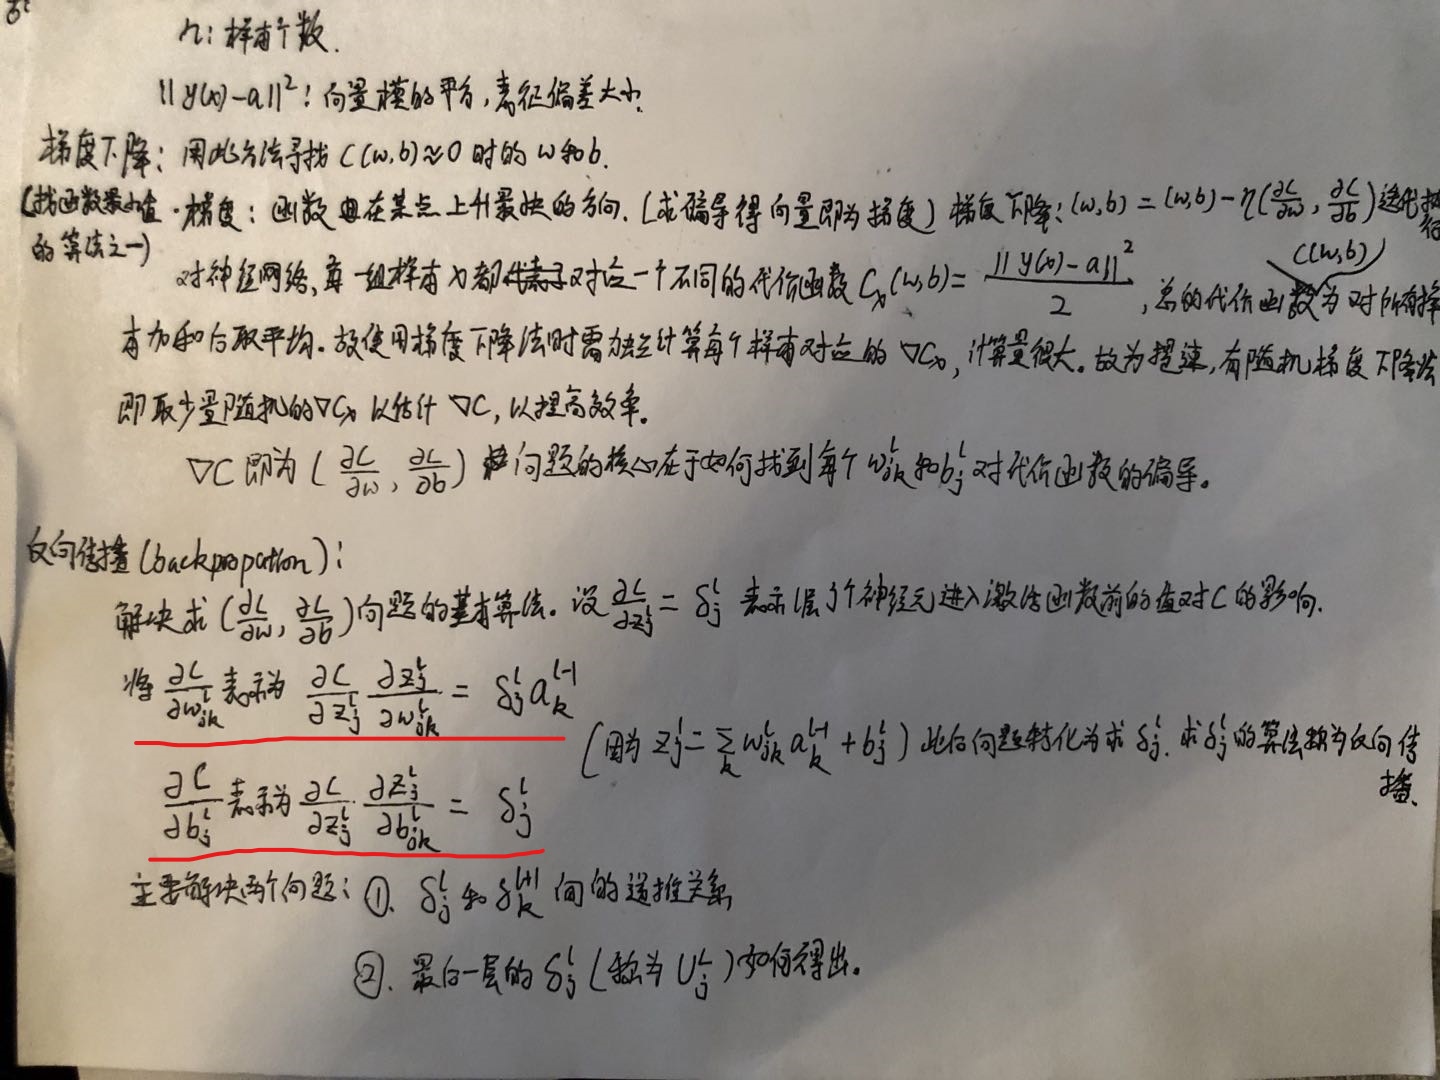 n: 样本个数.
||y(x)-a||²: 向量模的平方,表征偏差大小.
梯度下降: 用此方法寻找 C(w,b)≈0 时的 w 和 b.
(找函数最小值 ·梯度: 函数在某点上升最快的方向. (求偏导得向量即为梯度) 梯度下降: (w,b) = (w,b) - η(∂C/∂w, ∂C/∂b) 迭代执行
的算法之一)
对神经网络,每一组样本 x 都对应一个不同的代价函数 Cₓ(w,b) = ||y(x)-a||²/2 , 总的代价函数 C(w,b) 为对所有样
本加和后取平均。故使用梯度下降法时需独立计算每个样本对应的 ∇Cₓ, 计算量很大。故为提速,有随机梯度下降法
即取少量随机的∇Cₓ 以估计 ∇C, 以提高效率。
∇C 即为 (∂C/∂w, ∂C/∂b) 问题的核心在于如何找到每个 wˡⱼₖ 和 bˡⱼ 对代价函数的偏导。
反向传播 (backpropation):
解决求 (∂C/∂w, ∂C/∂b) 问题的基本算法。设 ∂C/∂zˡⱼ = δˡⱼ 表示 l层 j个神经元进入激活函数前的值对 C 的影响.
将 ∂C/∂wˡⱼₖ 表示为 ∂C/∂zˡⱼ ∂zˡⱼ/∂wˡⱼₖ = δˡⱼ aₖˡ⁻¹
(因为 zˡⱼ = Σₖ wˡⱼₖ aₖˡ⁻¹ + bˡⱼ) 此后问题转化为求 δˡⱼ. 求 δˡⱼ 的算法称为反向传
播.
∂C/∂bˡⱼ 表示为 ∂C/∂zˡⱼ · ∂zˡⱼ/∂bˡⱼₖ = δˡⱼ
主要解决两个问题: ①. δˡⱼ 和 δₖˡ⁺¹ 间的递推关系
②. 最后一层的 δˡⱼ (称为 Uᴸⱼ) 如何得出。